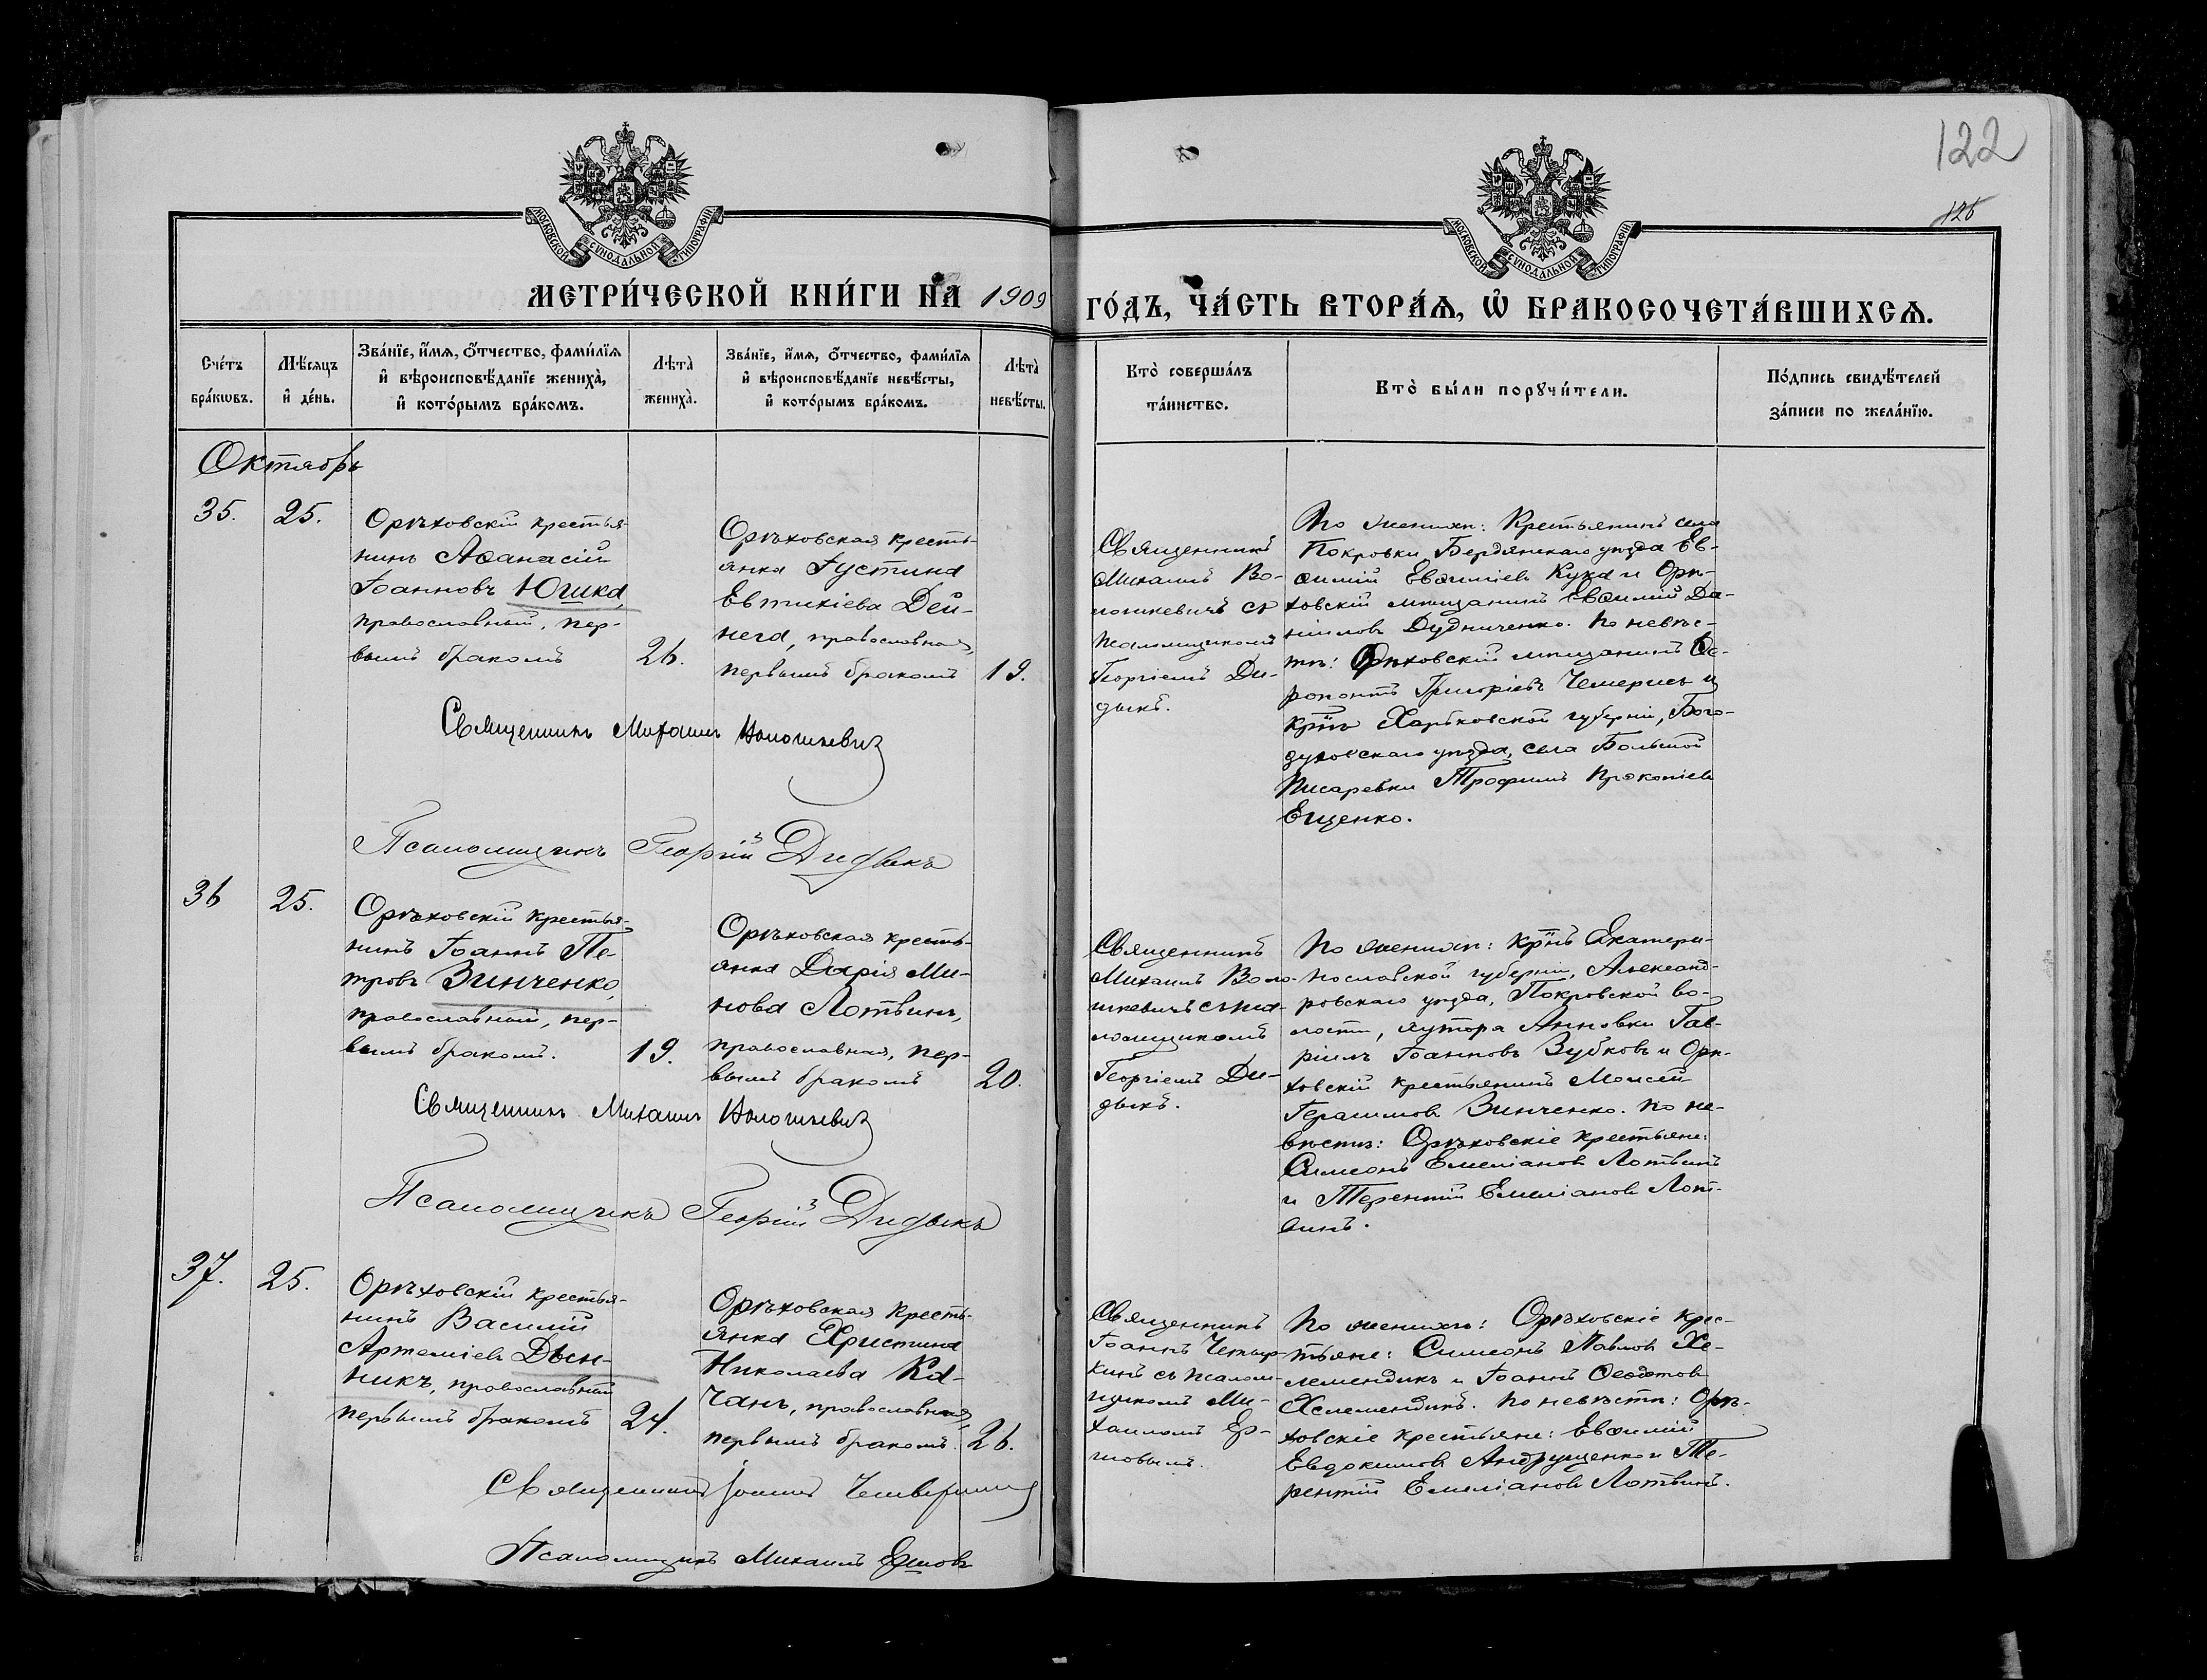 122
126
МОСКОВСКОЙ СѴНОДАЛЬНОЙ ТИПОГРАФІИ
МОСКОВСКОЙ СѴНОДАЛЬНОЙ ТИПОГРАФІИ
МЕТРИ́ЧЕСКОЙ КНИ́ГИ НА 1909
ГО́ДЪ, ЧА́СТЬ ВТОРА́Ѧ, Ѽ БРАКОСОЧЕТА́ВШИХСѦ.
Сче́тъ бра́кѡвъ.
Мѣ́сѧцъ и҆ де́нь.
Зва́нїе, и҆́мѧ, ѻ҆́тчество, фами́лїѧ
и҆ вѣроисповѣ́данїе жениха̀,
и҆ кото́рымъ бра́комъ.
Лѣта̀ жениха̀.
Зва́нїе, и҆́мѧ, ѻ҆́тчество, фами́лїѧ
и҆ вѣроисповѣ́данїе невѣ́сты,
и҆ кото́рымъ бра́комъ.
Лѣта̀ невѣ́сты.
Кто̀ соверша́лъ
та́инство.
Кто̀ бы́ли порꙋчи́тели.
По́дпись свидѣ́телей
за́писи по жела́нїю.
Октябрь
35. 25.
Орѣховскій крестья-
нинъ Аѳанасій
Іоанновъ Юшка,
православный, пер-
вымъ бракомъ
26.
Орѣховская кресть-
янка Іустина
Евтихіева Дей-
нега, православная,
первымъ бракомъ
19.
Священникъ
Михаилъ Во-
лошкевичъ съ
псаломщикомъ
Георгіемъ Ди-
дыкъ.
По женихѣ: Крестьянинъ села
Покровки Бердянскаго уѣзда Ев-
ѳимій Евѳиміевъ Кука и Орѣ-
ховскій мѣщанинъ Евѳимій Да-
ніиловъ Дудниченко. По невѣс-
тѣ: Орѣховскій мѣщанинъ
Григорьевъ Чемерисъ и
крⷭ҇нъ Харьковской губерніи, Бого-
духовскаго уѣзда, села Большой
Писаревки Трофимъ Прокопіевъ
Ещенко.
Священникъ Михаилъ Волошкевичъ
Псаломщикъ Георгій Дидыкъ
36 25.
Орѣховскій крестья-
нинъ Іоаннъ Пе-
тровъ Зинченко,
православный, пер-
вымъ бракомъ.
19.
Орѣховская кресть-
янка Дарія Ми-
нова Лотвинъ,
православная, пер-
вымъ бракомъ
20.
Священникъ
Михаилъ Воло-
шкевичъ съ пса-
ломщикомъ
Георгіемъ Ди-
дыкъ.
По женихѣ: крⷭ҇нъ Екатери-
нославской губерніи, Александ-
ровскаго уѣзда, Покровской во-
лости, хутора Анновки Гав-
ріилъ Іоанновъ Зубковъ и Орѣ-
ховскій крестьянинъ Моисей
Герасимовъ Зинченко. По не-
вѣстѣ: Орѣховскіе крестьяне:
Симеонъ Емеліановъ Лотвинъ
и Терентій Емеліановъ Лот-
винъ.
Священникъ Михаилъ Волошкевичъ
Псаломщикъ Георгій Дидыкъ
37. 25.
Орѣховскій крестья-
нинъ Василій
Артеміевъ Дѣй-
никъ, православный
первымъ бракомъ
24.
Орѣховская кресть-
янка Христина
Николаева Ка-
чанъ, православная,
первымъ бракомъ.
26.
Священникъ
Іоаннъ
съ псалом-
щикомъ Ми-
хаиломъ Ер-
шовымъ.
По женихѣ: Орѣховскіе крес-
тьяне: Симеонъ Павловъ Хе-
лемендикъ и Іоаннъ Ѳеодотовъ
Хелемендикъ. По невѣстѣ: Орѣ-
ховскіе крестьяне: Евѳимій
Евдокимовъ Андрущенко и Те-
рентій Емеліановъ Лотвинъ.
Священникъ Іоаннъ
Псаломщикъ Михаилъ Ершовъ